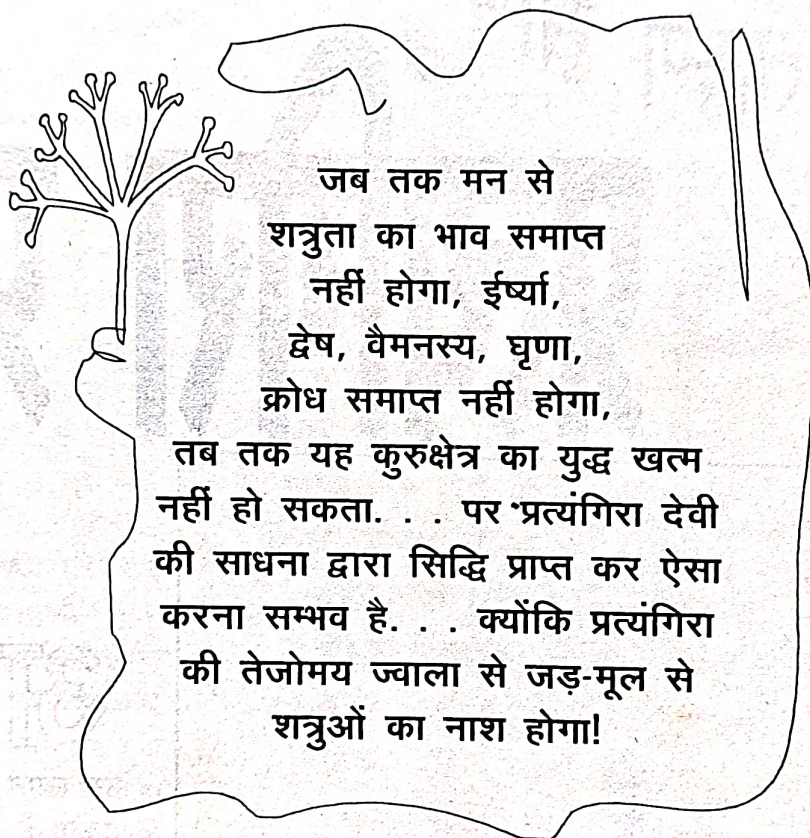 जब तक मन से
शत्रुता का भाव समाप्त
नहीं होगा, ईर्ष्या,
द्वेष, वैमनस्य, घृणा,
क्रोध समाप्त नहीं होगा,
तब तक यह कुरुक्षेत्र का युद्ध खत्म
नहीं हो सकता. . . पर प्रत्यंगिरा देवी
की साधना द्वारा सिद्धि प्राप्त कर ऐसा
करना सम्भव है. . . क्योंकि प्रत्यंगिरा
की तेजोमय ज्वाला से जड़-मूल से
शत्रुओं का नाश होगा!